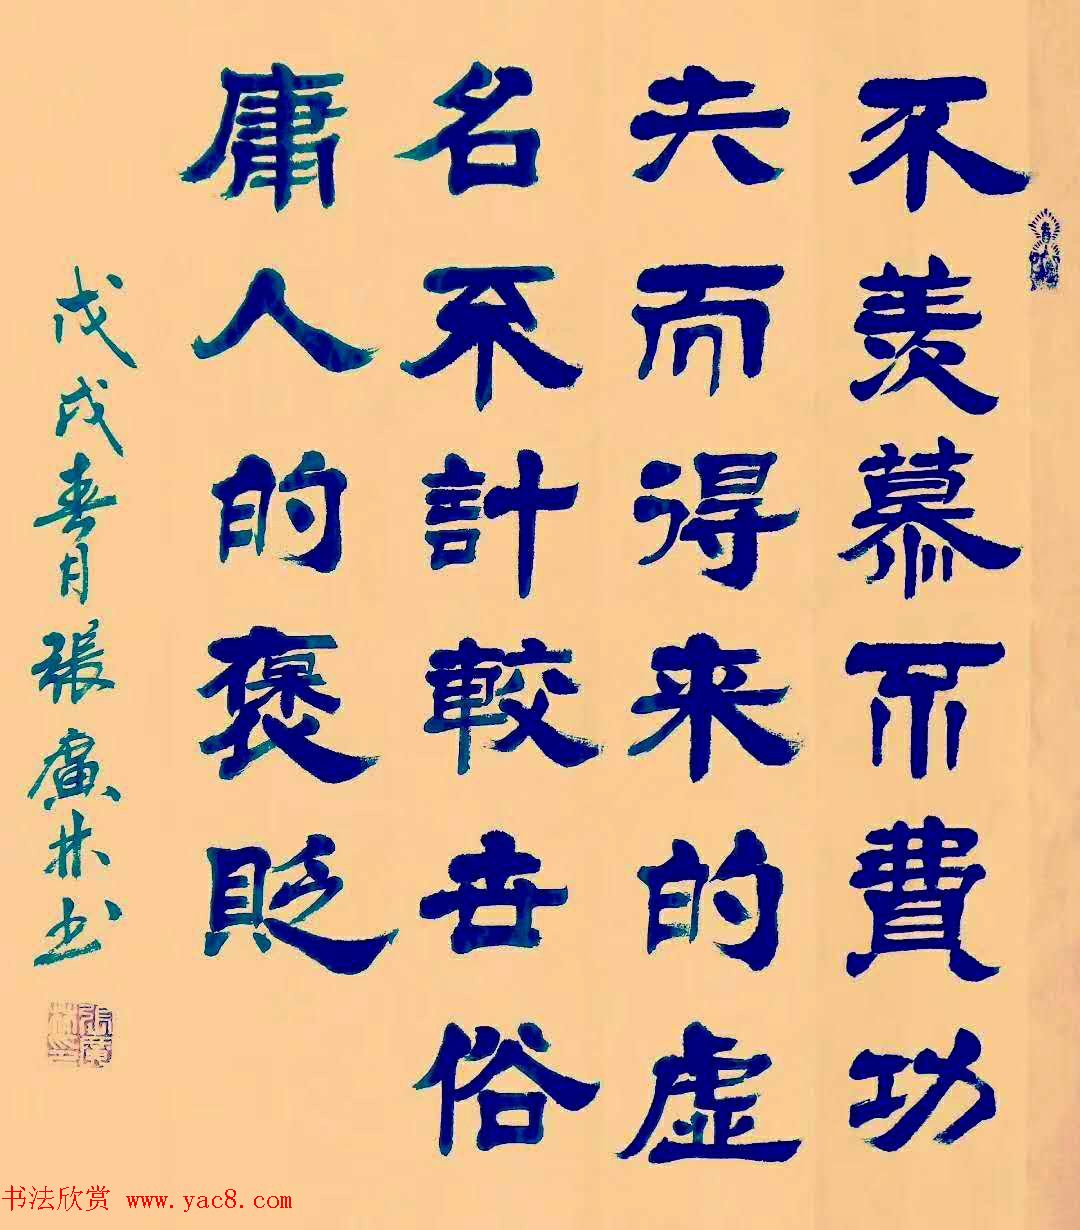 不羨慕不費功
夫而得来的虚
名不計較世俗
庸人的褒貶
戊戌春月張廣林书
張廣林印
书法欣赏 www.yac8.com